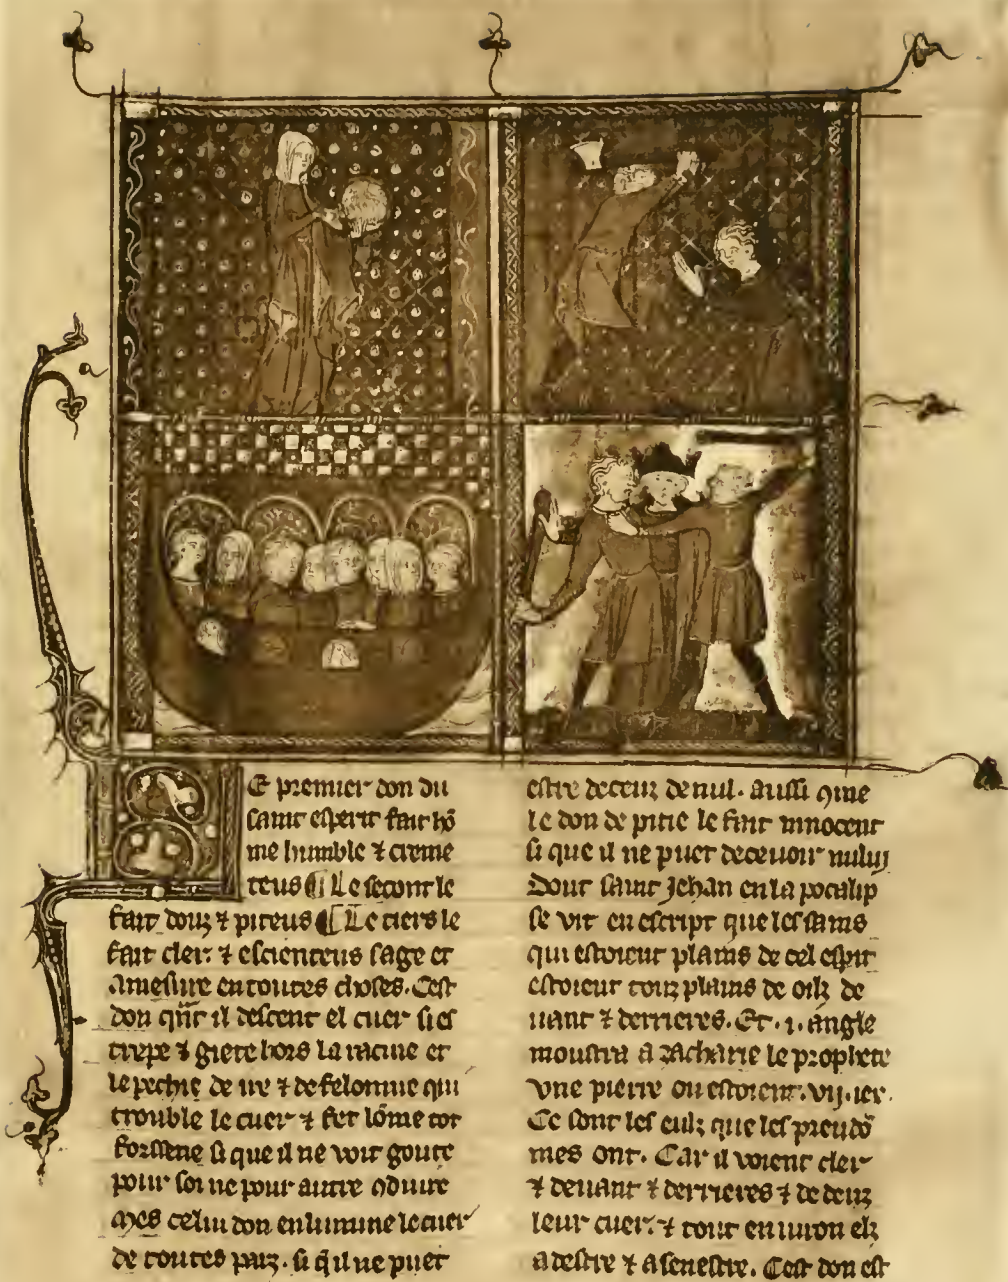 Le premier don du
saint esperit fait hō
me humble ⁊ creme
teus ¶ Le secont le
fait douz ⁊ piteus ¶ Le tiers le
fait cler. ⁊ escienteus sage et
amesure en toutes choses. Cest
don qñt il descent el cuer si es
trepe ⁊ giete hors la racine et
le pechie de ire ⁊ de felonnie qui
trouble le cuer ⁊ fet lōme tot
forssene si que il ne voit goute
pour soi ne pour autre 9duire
Mes celui don enlumine le cuer
de toutes parz. si q̄ il ne puet
estre deceuz de nul. aussi 9me
le don de pitie le fait innocent
si que il ne puet decevoir nuluj
Dont saint Jehan en la pocalip
se vit en escript que les sains
qui estoient plains de cel esprit
estoient touz plains de oilz de
uant ⁊ derrieres. Et .i. angle
moustra a zacharie le prophete
vne pierre ou estoient .vij. iex.
Ce sont les eulz que les preudō
mes ont. Car il voient cler
⁊ deuant ⁊ derrieres ⁊ dedenz
leur cuer. ⁊ tout enuiron elz
a destre ⁊ a senestre. Cest don est